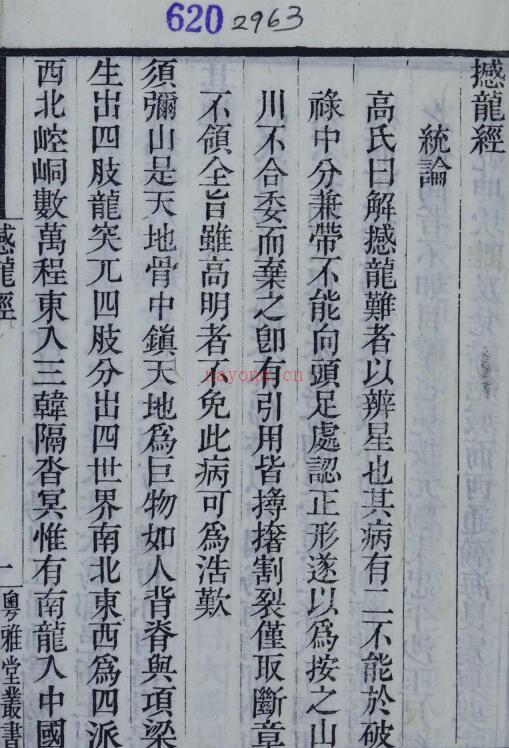 620 2963
撼龍經
統論
高氏曰解撼龍難者以辨星也其病有二不能於破
祿中分兼帶不能向頭足處認正形遂以爲按之山
川不合委而棄之卽有引用皆撏撦割裂僅取斷章
不領全旨雖高明者不免此病可爲浩歎
須彌山是天地骨中鎮天地爲巨物如人背脊與項梁
生出四肢龍突兀四肢分出四世界南北東西爲四派
西北崆峒數萬程東入三韓隔杳冥惟有南龍入中國
撼龍經
一
粵雅堂叢書
nayona.cn